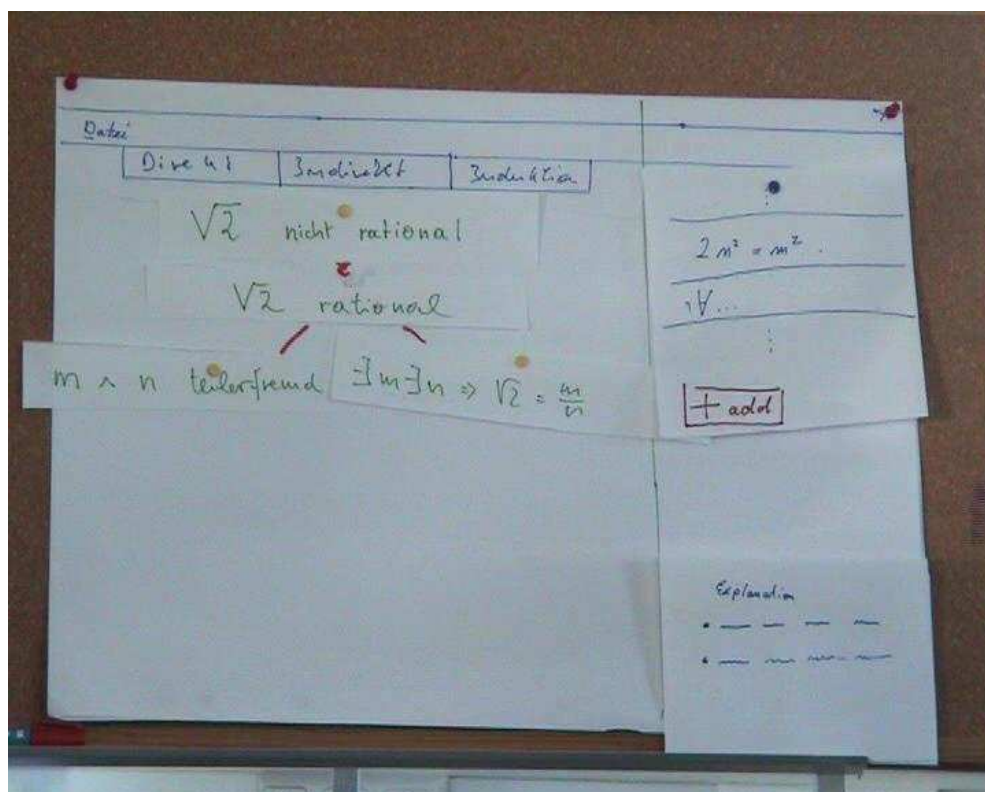 Datei
Direkt Indirekt Induktion
√2 nicht rational
√2 rational
m ∧ n teilerfremd
∃m∃n ⇒ √2 = m/n
2n² = m².
,∀...
+ add
Explanation